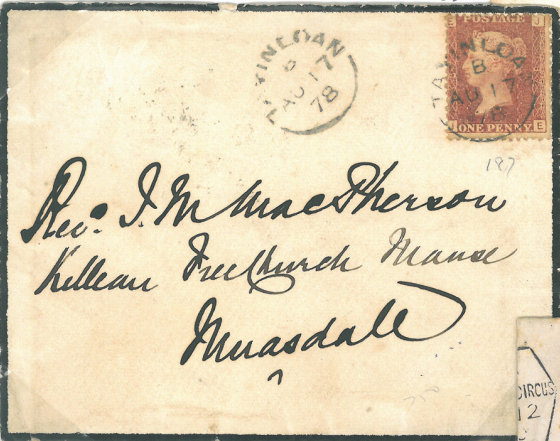 TAYINLOAN
B
AU 17
78
POSTAGE
E J
TAYINLOAN
B
AU 17
78
J E
ONE PENNY
187
Revd. J. M MacPherson
Killean Free Church Manse
Muasdale
^
CIRCUS
12